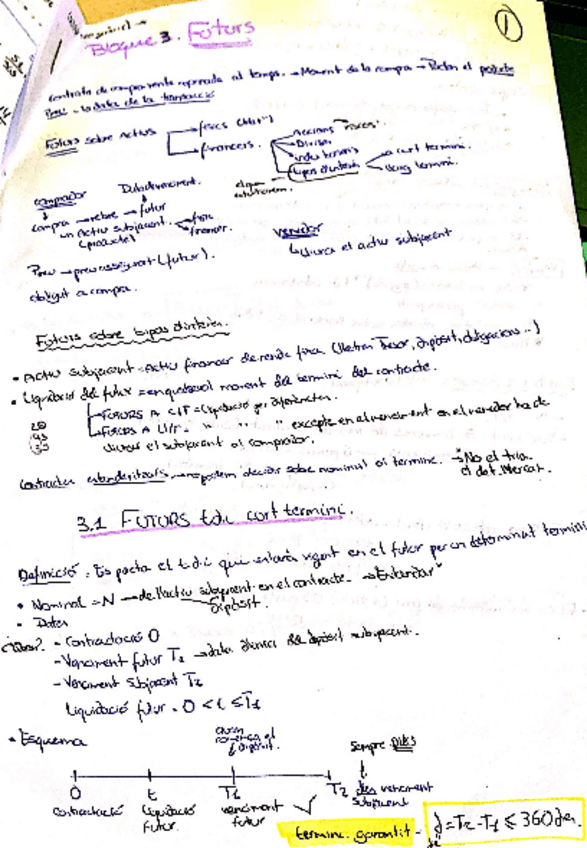 Bloque 3. Futurs
1
contracte de compravenda aplaçada al temps. → Moment de la compra → Pacten el
Preu - la data de la transacció
Futurs sobre Actius → físics
→ financers.
Accions
Divises
índex borsaris
tipos d'interès
a curt termini.
llarg termini.
comprador
venedor
compra → rebre → futur
un Actiu subjacent.
(producte)
físic
financer.
↳ lliura el actiu subjacent
Preu → preu assignat (futur).
obligat a compra.
Futurs sobre tipos d'interès.
• Actiu subjacent = Actiu financer de renda fixa (lletres Tresor, dipòsit, obligacions...)
• Liquidació del futur = en qualsevol moment del termini del contracte.
FUTUROS A C/T = Liquidació per diferències.
FUTUROS A LL/T = " " " excepte en el venciment en el venedor ha de
lliurar el subjacent al comprador.
contractes estandaritzats → no podem decidir sobre nominal ni termini. → No el tria
el det. Mercat.
3.1 FUTURS t.d.i. curt termini.
Definició: Es pacta el t.d.i que estarà vigent en el futur per un determinat termini
• Nominal = N → de l'actiu subjacent en el contracte. → Estandar
Dipòsit.
• Dates
- Contractació 0
- Venciment futur T1 → data d'inici del dipòsit subjacent.
- Venciment subjacent T2
Liquidació futur. 0 < t ≤ T1
• Esquema
dipòsit.
Sempre DIES
0 t T1 T2
contractació
Liquidació
Futur.
venciment
futur
venciment
subjacent
termini garantit -
j = T2 - T1 ≤ 360 dies.